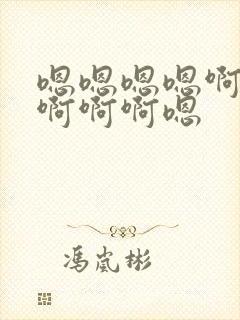 嗯嗯嗯嗯啊
啊啊啊嗯
冯岚彬